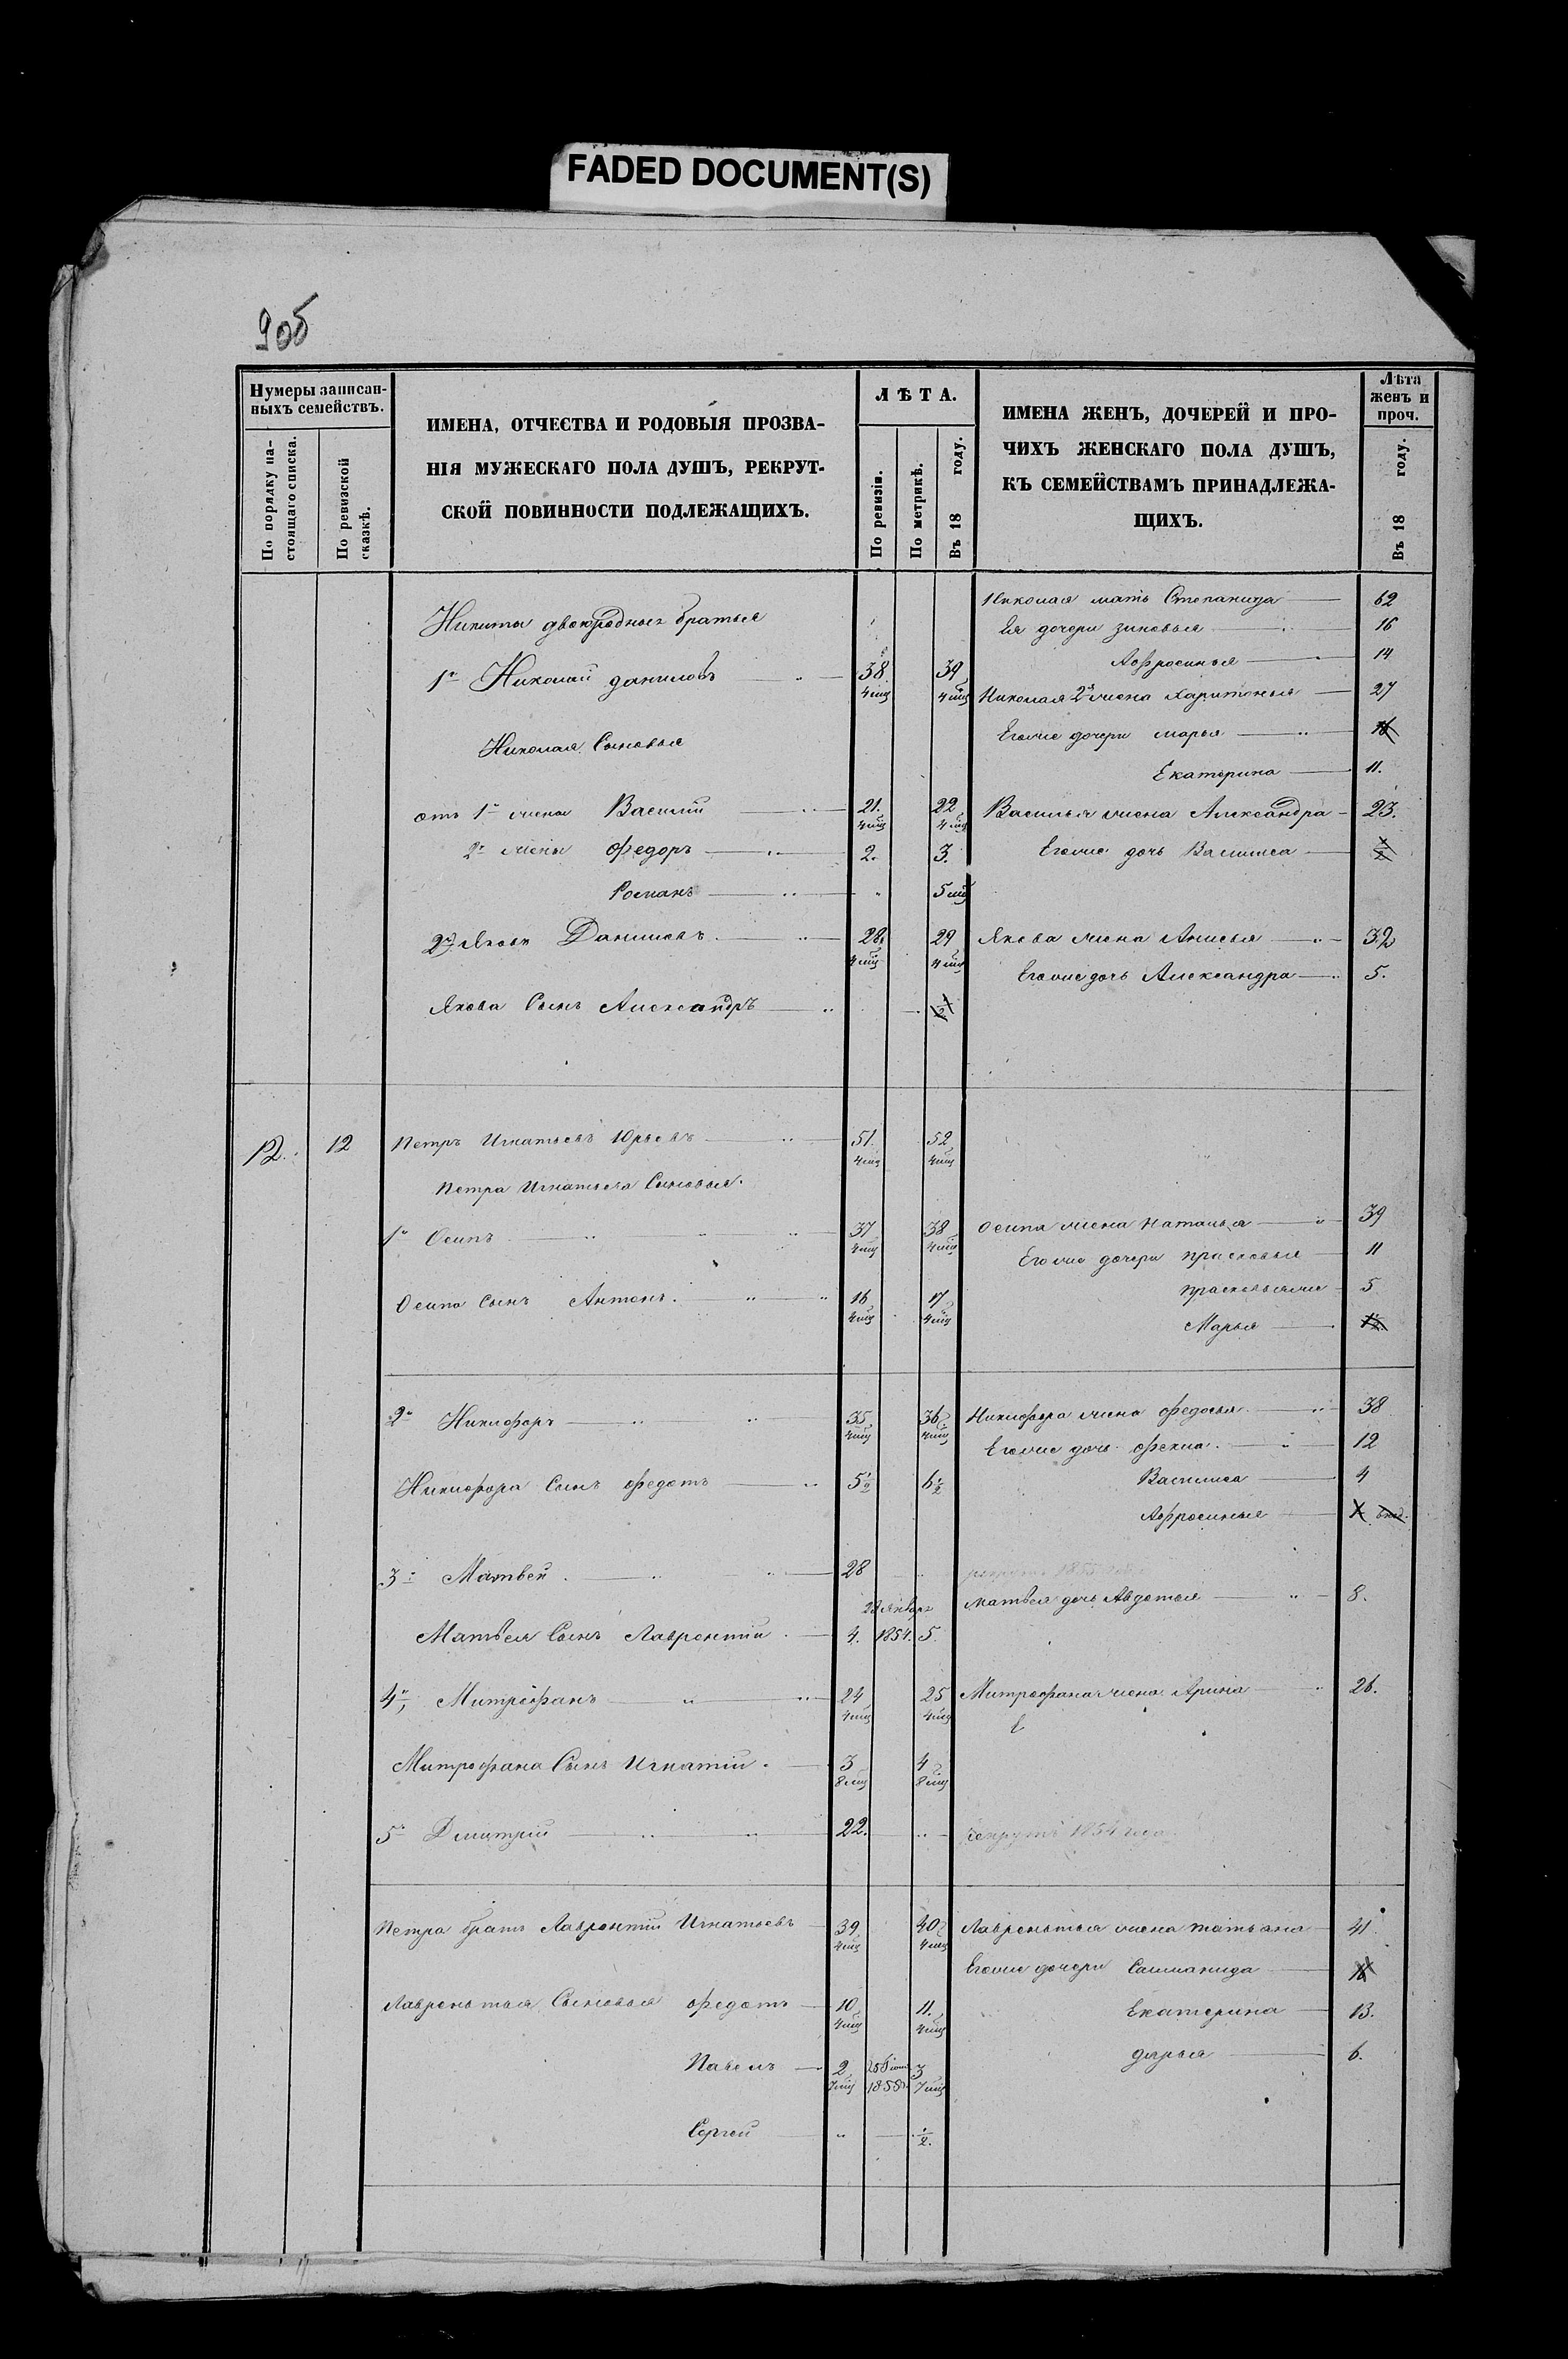 FADED DOCUMENT(S)
906
Нумеры записан-
ныхъ семействъ.
По порядку на-
стоящаго списка.
По ревизской
сказкѣ.
ИМЕНА, ОТЧЕСТВА И РОДОВЫЯ ПРОЗВА-
НІЯ МУЖЕСКАГО ПОЛА ДУШЪ, РЕКРУТ-
СКОЙ ПОВИННОСТИ ПОДЛЕЖАЩИХЪ.
ЛѢТА.
По ревизіи.
По метрикѣ.
Въ 18 году.
ИМЕНА ЖЕНЪ, ДОЧЕРЕЙ И ПРО-
ЧИХЪ ЖЕНСКАГО ПОЛА ДУШЪ,
КЪ СЕМЕЙСТВАМЪ ПРИНАДЛЕЖА-
ЩИХЪ.
Лѣта
женъ и
проч.
Въ 18 году.
Николая мать Степанида 62
Никиты двоюродные братья
Ея дочери Зиновья 16
Афросинья 14
1й Николай Даниловъ 38 4 мѣц 39 4 мѣц
Николая 2я жена Харитонья 27
Николая Сыновья
Его же дочери Марья
Екатерина 11.
отъ 1й жены Василій 21. 4 мѣц 22 4 мѣц
Василья жена Александра 23.
2й жены Федоръ 2. 3.
Его же дочь Василиса
Романъ 5 мѣц
2й Яковъ Даниловъ 28. 4 мѣц 29 4 мѣц
Якова жена Анисья 32
Его же дочь Александра 5.
Якова Сынъ Александръ
12. 12 Петръ Игнатьевъ Юрьевъ 51. 4 мѣц 52 4 мѣц
Петра Игнатьева Сыновья.
1й Осипъ 37 4 мѣц 38 4 мѣц
Осипа жена Наталья 39
Его же дочери Прасковья 11
Осипа Сынъ Антонъ. 16 4 мѣц 17 4 мѣц
Прасковья же 5
Марья
2й Никифоръ 35. 4 мѣц 36 4 мѣц
Никифора жена Федосья 38
Его же дочь Фекла. 12
Никифора Сынъ Федотъ 5½ 6½
Василиса 4
Афросинья
3й Матвей 28
рекрутъ 1855 года
Матвея дочь Авдотья 8.
Матвея Сынъ Лаврентій 4. 28 Январь 1854. 5
4й Митрофанъ 24 4 мѣц 25 4 мѣц
Митрофана жена Арина 26.
Е
Митрофана Сынъ Игнатій. 3 8 мѣц 4 8 мѣц
5й Дмитрій 22.
рекрутъ 1854 года
Петра братъ Лаврентій Игнатьевъ 39 4 мѣц 40 4 мѣц
Лаврентья жена Татьяна 41
Его же дочери
Лаврентья Сыновья Федотъ 10 4 мѣц 11. 4 мѣц
Екатерина 13.
Дарья 6.
Павелъ 2 7 мѣц 3 7 мѣц
Сергей ½.